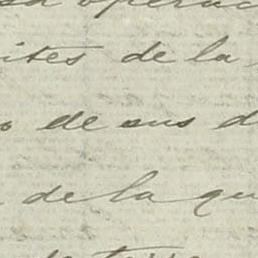 operac
ites de la
o de sus d
de la qu